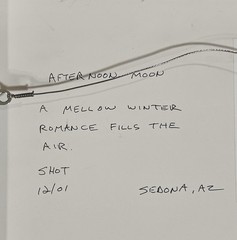 AFTERNOON MOON
A MELLOW WINTER
ROMANCE FILLS THE
AIR.
SHOT
12/01 SEDONA, AZ